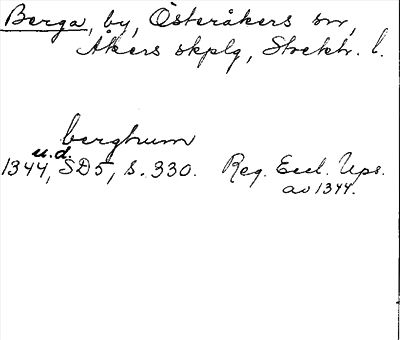 Berga, by, Österåkers sn,
Åkers skplg, Stockh. l.
berghum
u.d.
1344, SD5, s. 330. Reg. Eccl. Ups.
av 1344.